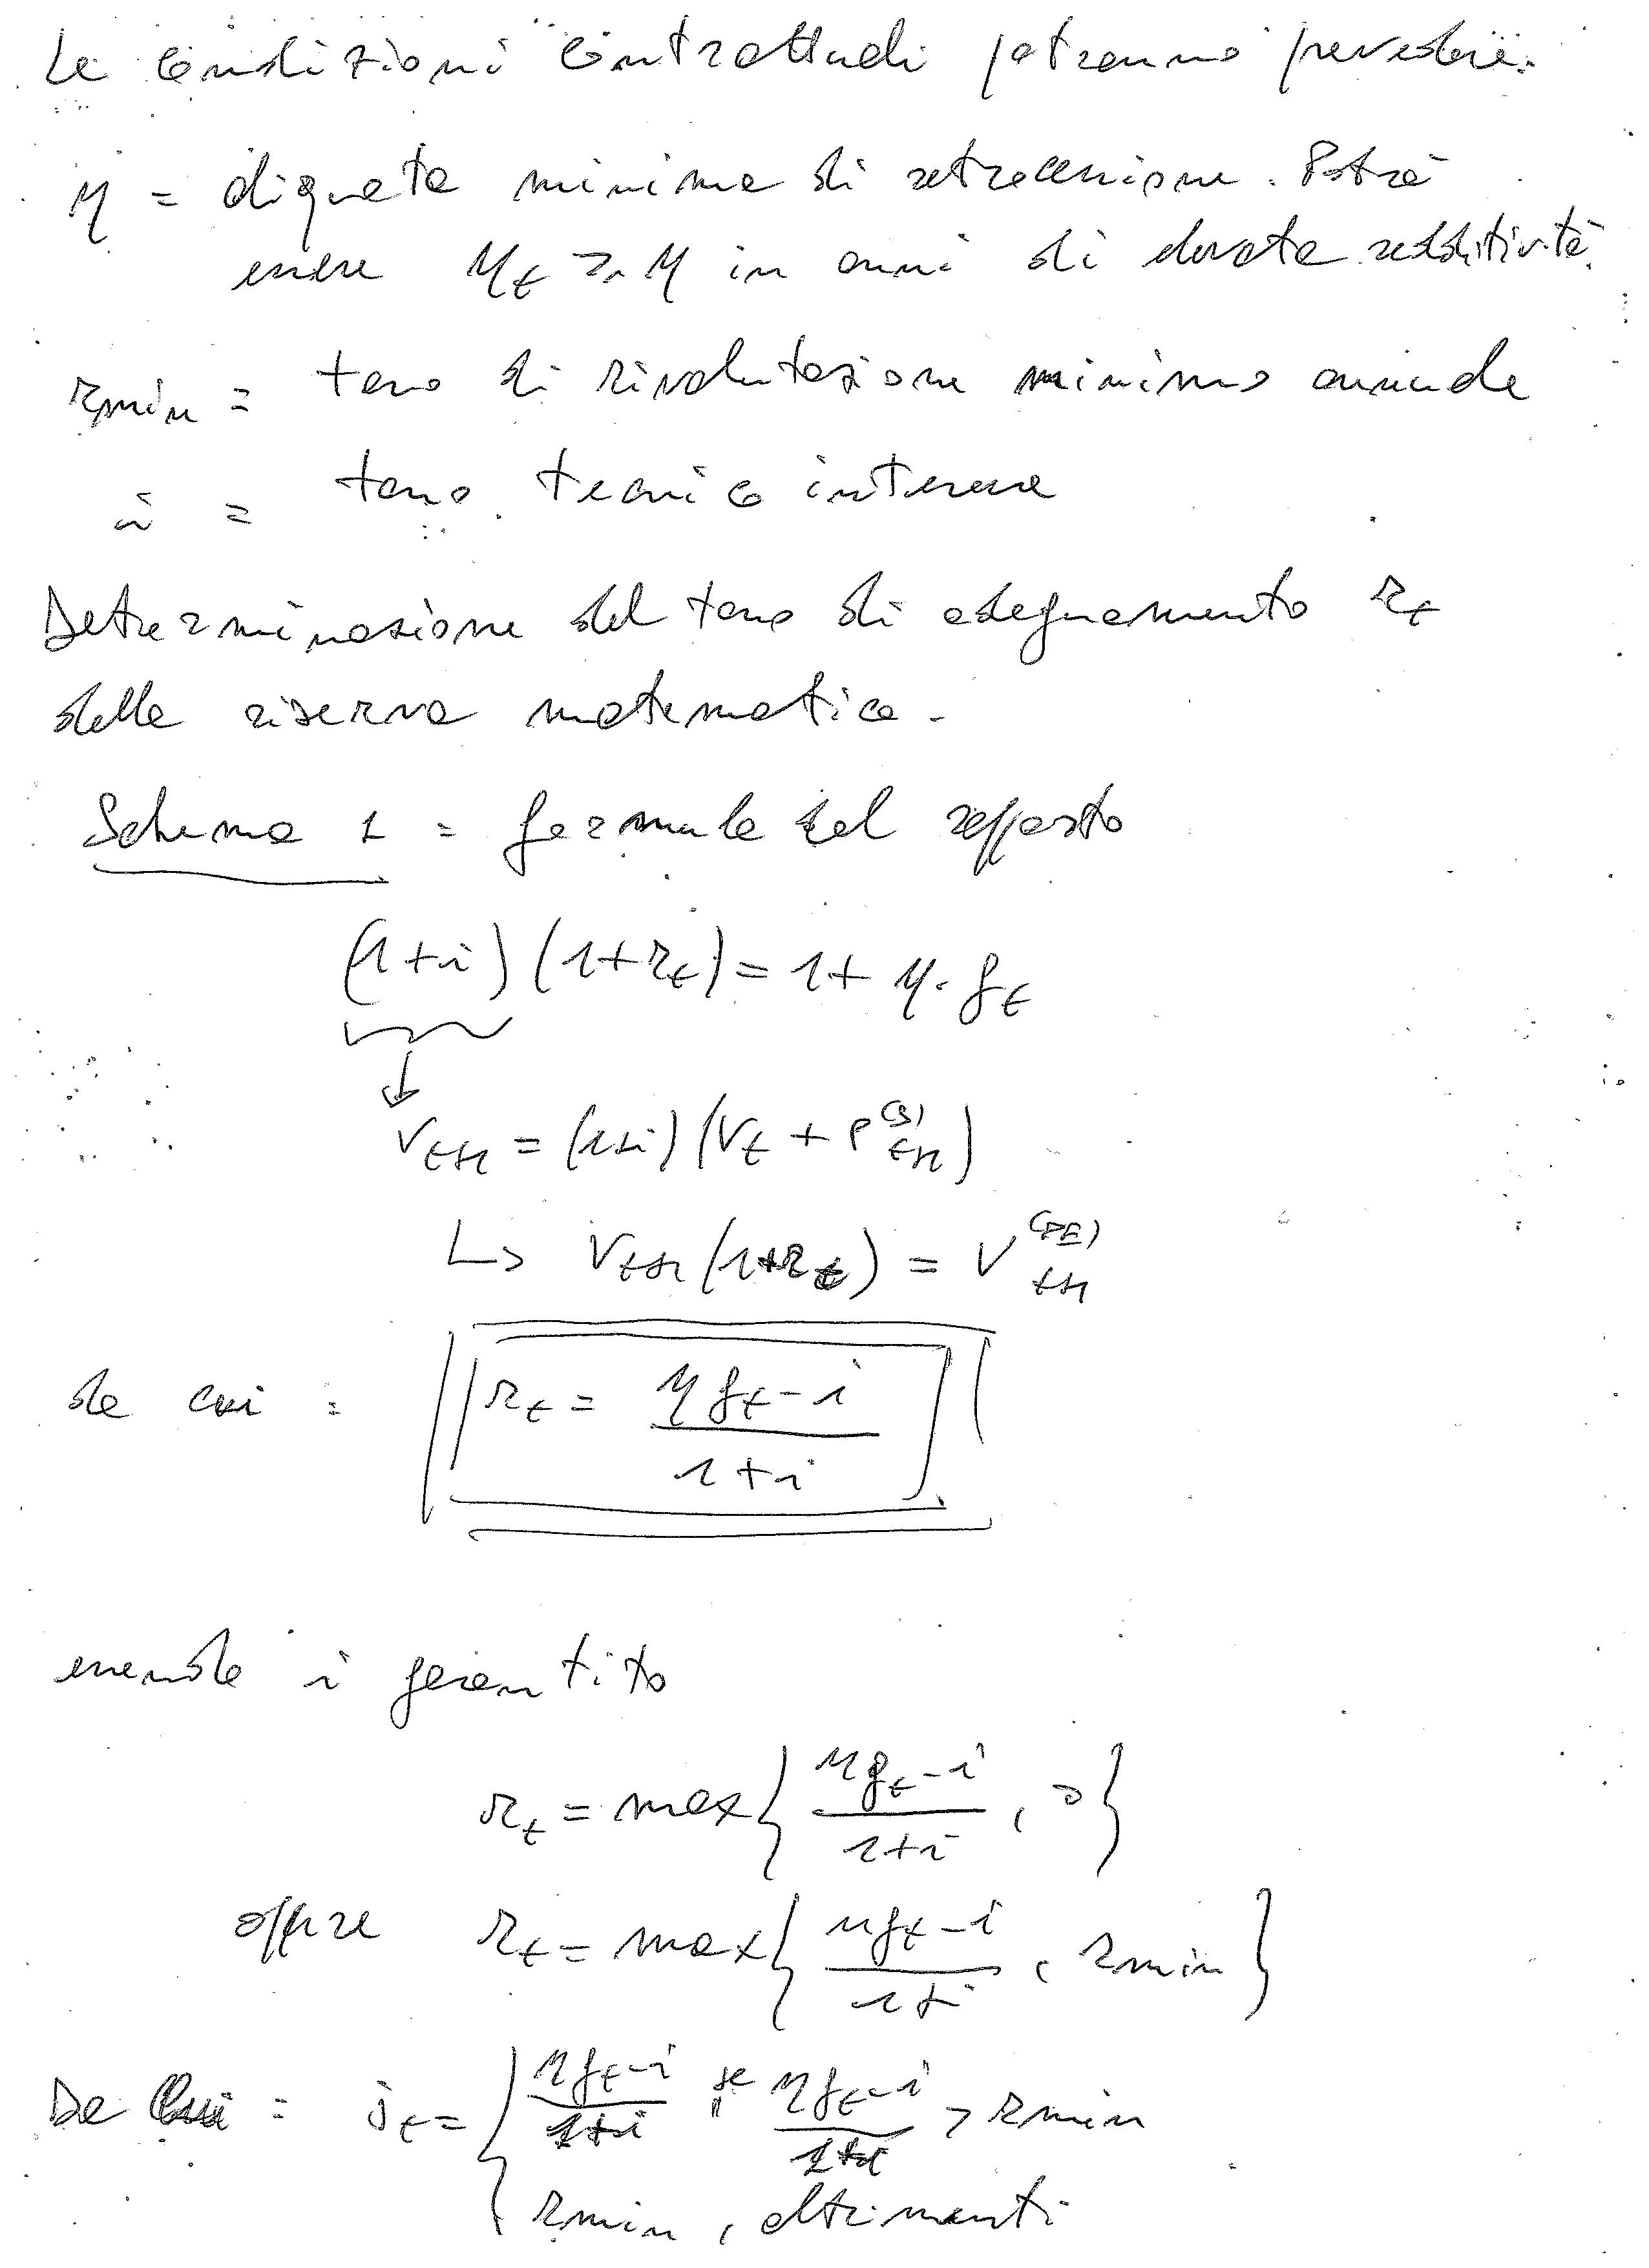 Le condizioni contrattuali potranno prevedere:
η = aliquota minima di retrocessione. Potrà
essere η_t ≥ η in anni di elevata redditività.
r_min = tasso di rivalutazione minimo annuale
i = tasso tecnico interesse
Determinazione del tasso di adeguamento r_t
della riserva matematica.
Schema 1 = formula del rapporto
(1+i)(1+r_t) = 1+ η·g_t
↓
V_{t+1} = (1+i)(V_t + P^{(S)}_{t+1})
↳ V_{t+1}(1+r_t) = V^{(DE)}_{t+1}
da cui : r_t = (η g_t - i)/(1+i)
essendo i garantito
r_t = max{ (η g_t - i)/(1+i) , 0 }
oppure r_t = max{ (η g_t - i)/(1+i) , r_min }
Da cui : j_t = { (η g_t - i)/(1+i) se (η g_t - i)/(1+i) > r_min
r_min , altrimenti